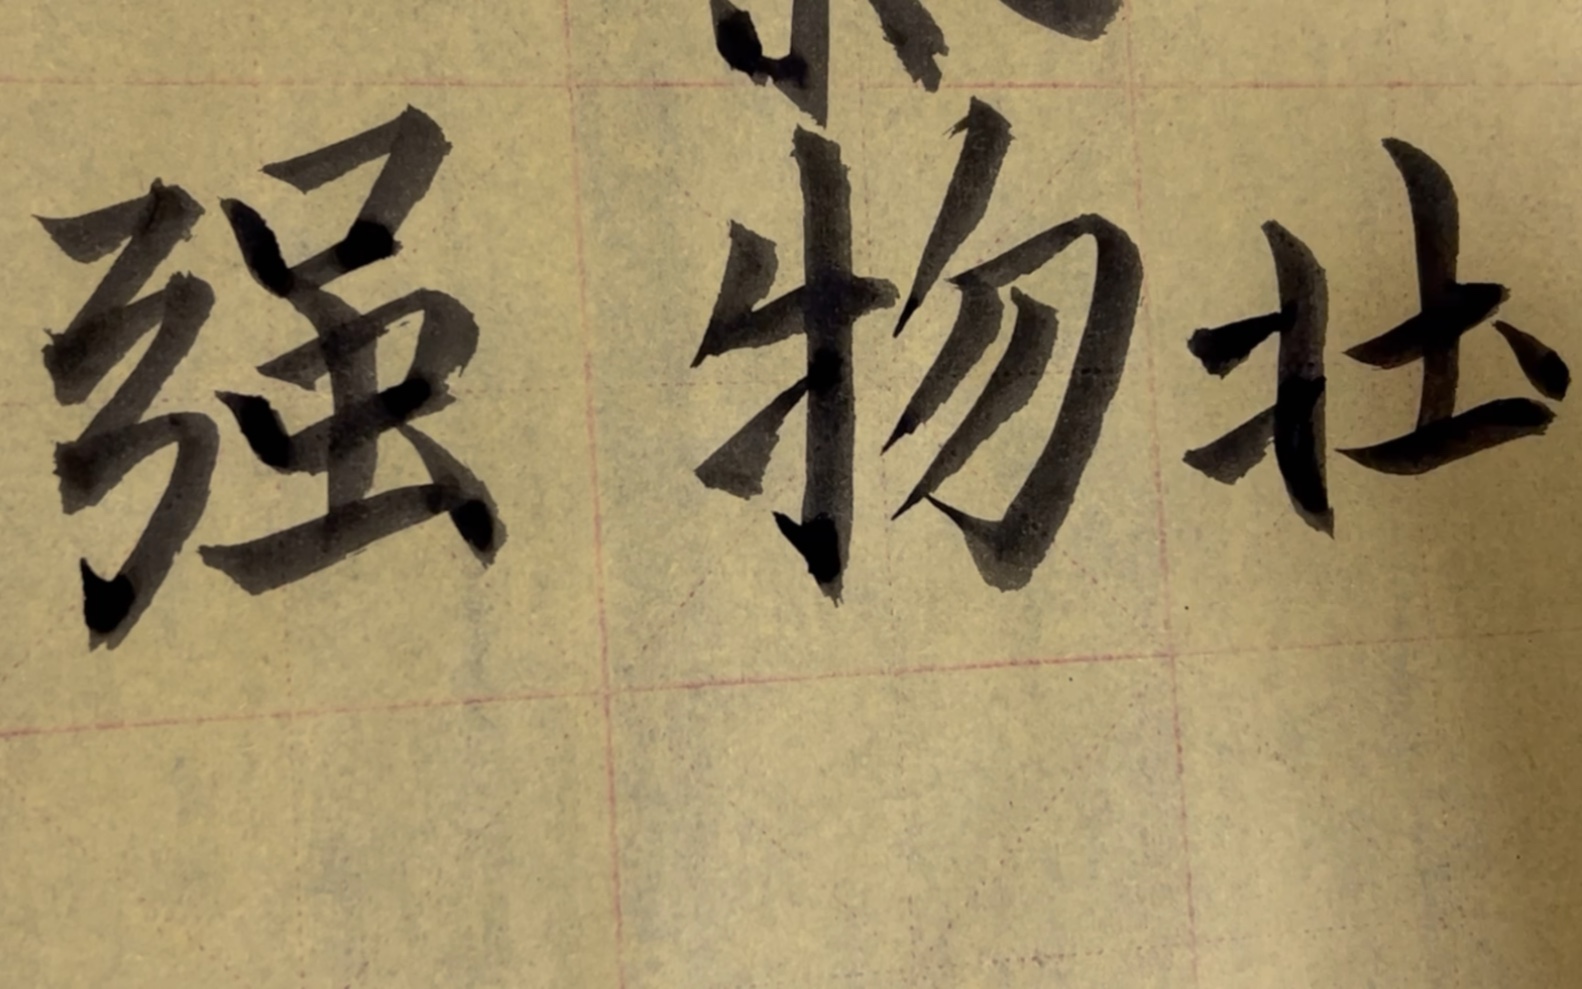 强物壮